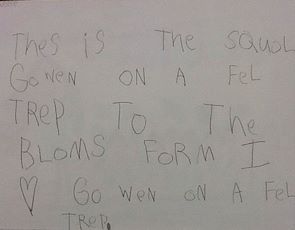 Thes is The squol
Gowen ON A Fel
TREP To The
BLOMS FORM I
♡ Go wen oN A Fel
TReP.